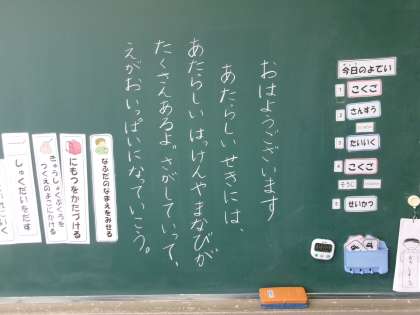 おはようございます
あたらしいせきには、
あたらしいはっけんやまなびが
たくさんあるよ。さがしていって、
えがおいっぱいになっていこう。
今日のよてい
1 こくご
2 さんすう
3 たいいく
4 こくご
そうじ
5 せいかつ
なふだのなまえをみせる
にもつをかたづける
きゅうしょくぶくろを
つくえのよこにかける
しゅくだいをだす